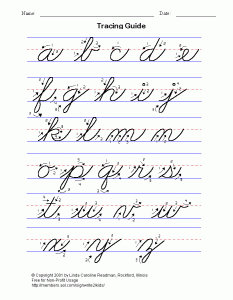 Name: Date:
Tracing Guide
a b c d e
f g h i j
k l m n
o p q r s
t u v w
x y z
© Copyright 2001 by Linda Caroline Readman, Rockford, Illinois
Free for Non-Profit Usage